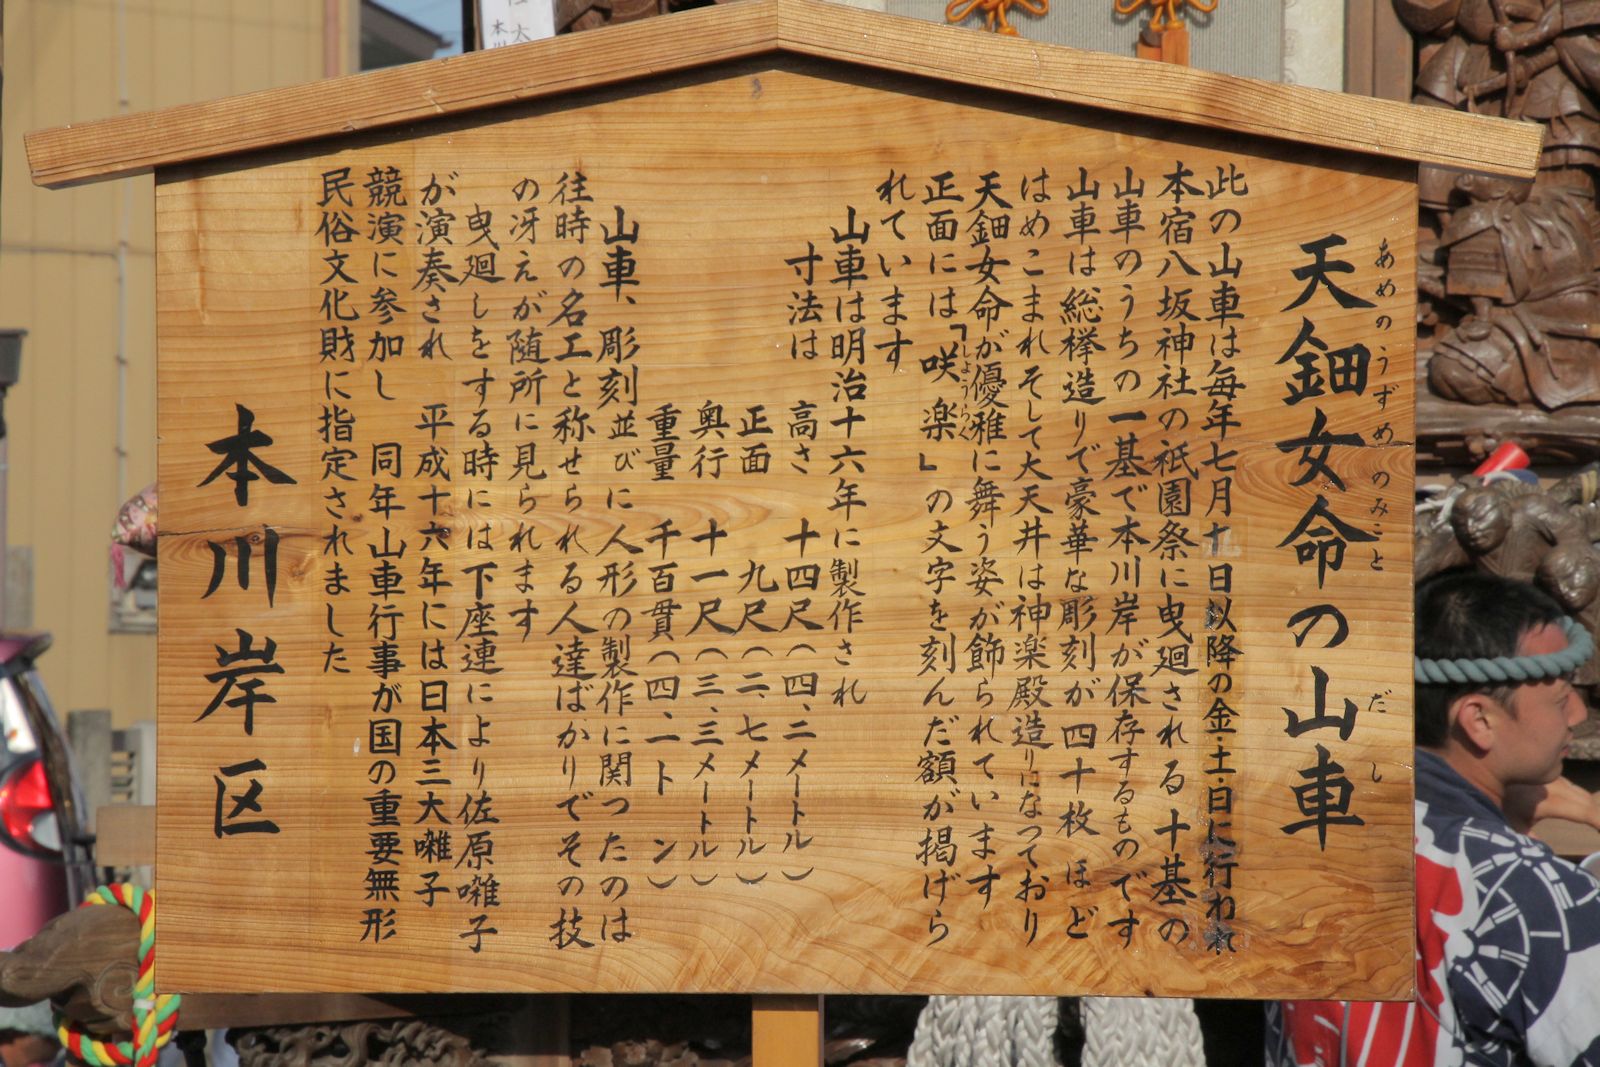 天鈿女命の山車
あめのうずめのみこと だし
此の山車は毎年七月十日以降の金・土・日に行われ
本宿八坂神社の祇園祭に曳廻される十基の
山車のうちの一基で本川岸が保存するものです
山車は総欅造りで豪華な彫刻が四十枚ほど
はめこまれそして大天井は神楽殿造りになつており
天鈿女命が優雅に舞う姿が飾られています
正面には「咲楽」の文字を刻んだ額が掲げら
しようらく
れています
山車は明治十六年に製作され
寸法は 高さ 十四尺(四、二メートル)
正面 九尺(二、七メートル)
奥行 十一尺(三、三メートル)
重量 千百貫(四、一トン)
山車、彫刻並びに人形の製作に関つたのは
往時の名工と称せられる人達ばかりでその技
の冴えが随所に見られます
曳廻しをする時には下座連により佐原囃子
が演奏され 平成十六年には日本三大囃子
競演に参加し 同年山車行事が国の重要無形
民俗文化財に指定されました
本川岸区